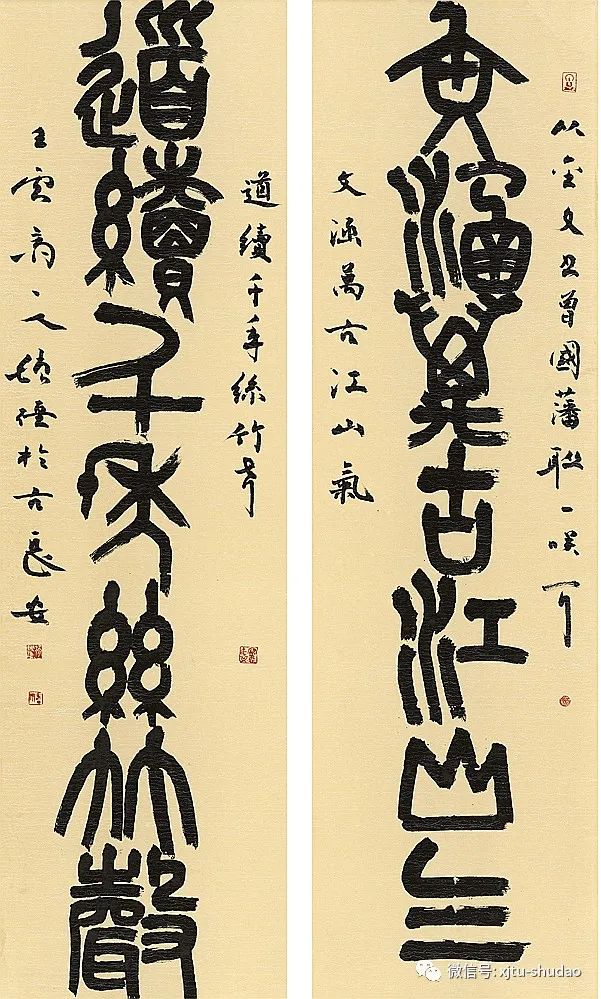 以金文书曾國藩聯一咲
文涵萬古江山气
文涵萬古江山氣
道續千年絲竹聲
道續千年絲竹聲
於古長安
微信号: xjtu-shudao